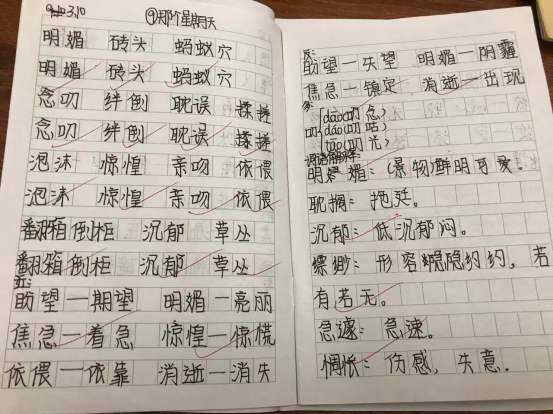 3.10 ⑨那个星期天
明媚 砖头 蚂蚁穴
明媚 砖头 蚂蚁穴
念叨 绊倒 耽误 揉搓
念叨 绊倒 耽误 揉搓
泡沫 惊惶 亲吻 依偎
泡沫 惊惶 亲吻 依偎
翻箱倒柜 沉郁 草丛
翻箱倒柜 沉郁 草丛
近:
盼望—期望 明媚—亮丽
焦急—着急 惊惶—惊慌
依偎—依靠 消逝—消失
反:
盼望—失望 明媚—阴霾
焦急—镇定 消逝—出现
多:
叨
dāo(叨念)
dáo(叨咕)
tāo(叨光)
词语解释:
明媚:(景物)鲜明可爱。
耽搁:拖延。
沉郁:低沉郁闷。
缥缈:形容隐隐约约,若
有若无。
急遽:急速。
惆怅:伤感,失意。